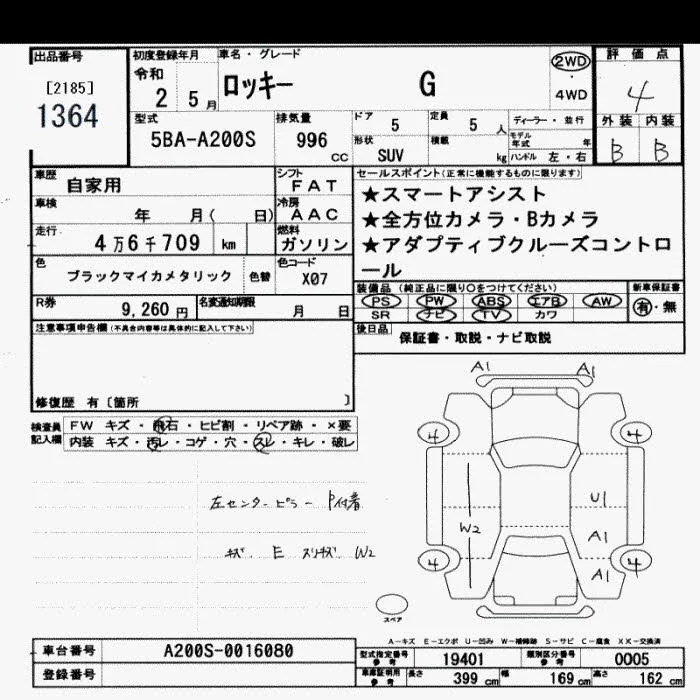 出品番号
[2185]
1364
初度登録年月
令和
2 5月
車名・グレード
ロッキー G
2WD
・
4WD
評価点
4
外装 内装
B B
型式
5BA-A200S
排気量
996
CC
ドア
5
定員
5 人
形状
SUV
積載
kg
ディーラー・並行
モデル年式 年
ハンドル 左・右
車歴
自家用
シフト
FAT
車検
年 月( 日)
冷房
AAC
走行
4万6千709 km
燃料
ガソリン
色
ブラックマイカメタリック
色替
色コード
X07
R券
9,260円
名変通知期限
月 日
セールスポイント(正常に機能するものに限ります)
★スマートアシスト
★全方位カメラ・Bカメラ
★アダプティブクルーズコントロ
ール
装備品(純正品に限り○をつけてください)
新車保証書
PS PW ABS エアB AW
SR ナビ TV カワ
有・無
後日品
保証書・取説・ナビ取説
注意事項申告欄(不具合内容等は具体的に記入して下さい)
修復歴 有〔箇所 〕
検査員
記入欄
FW キズ・飛石・ヒビ割・リペア跡・×要
内装 キズ・汚レ・コゲ・穴・スレ・キレ・破レ
左センターピラー P付着
キズ E スリキズ W2
A1 A1
4 4
U1
W2
A1
4 A1 4
スペア
A-キズ E-エクボ U-凹み W-補修跡 S-サビ C-腐食 XX-交換済
車台番号
A200S-0016080
登録番号
型式指定番号
参考
19401
類別区分番号
参考
0005
車庫証明用
参考
長さ
399 cm
幅
169 cm
高さ
162 cm